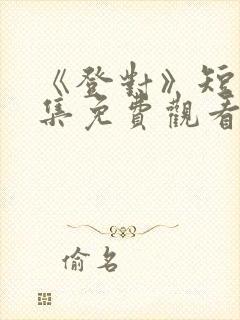 《登對》短
集免費觀看
偷名